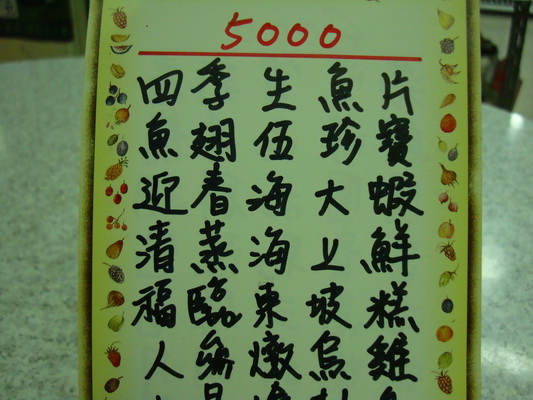 5000
四季生魚片
魚翅伍珍寶
迎春海大蝦
清蒸海上鮮
福臨東坡糕
人參燉烏雞